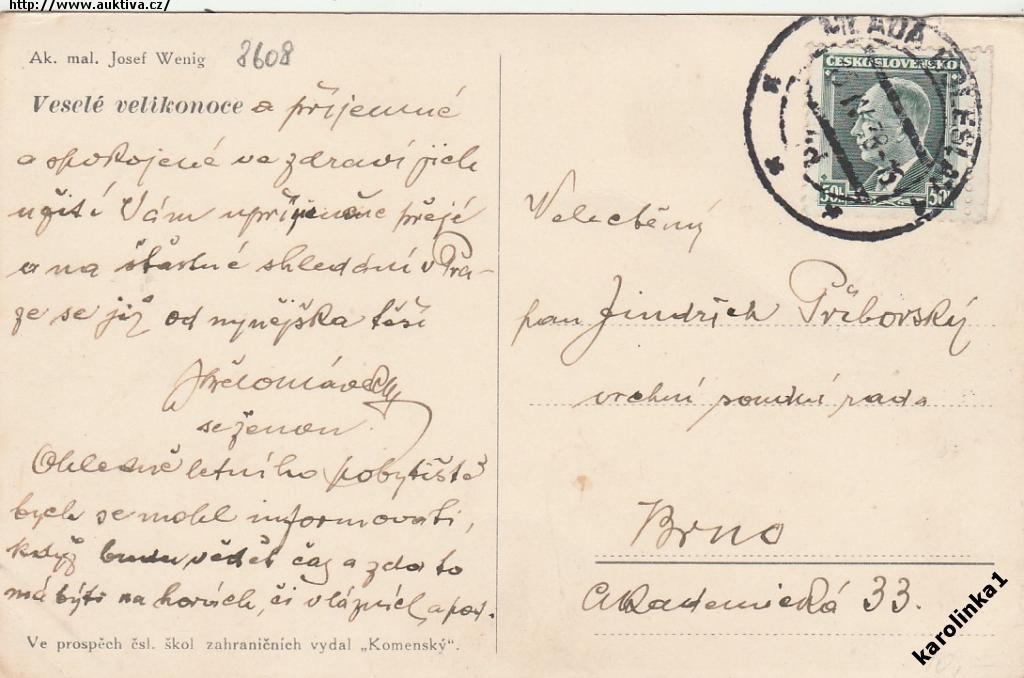 http://www.auktiva.cz/
Ak. mal. Josef Wenig 8608
Veselé velikonoce a příjemné
a spokojené ve zdraví jich
užití Vám upřímně přejé
a na šťastné shledání v Pra-
ze se již od nynějška těší
se ženou.
Ohledně letního pobytiště
bych se mohl informovati,
když budu vědět čas a zda to
má býti na horách, či v lázních, a pod.
Ve prospěch čsl. škol zahraničních vydal „Komenský".
MLADÁ BOLESLAV
ČESKOSLOVENSKO
50h
Velectěný
pan Jindřich Příborský
vrchní soudní rada
Brno
Akademická 33.
karolinka1